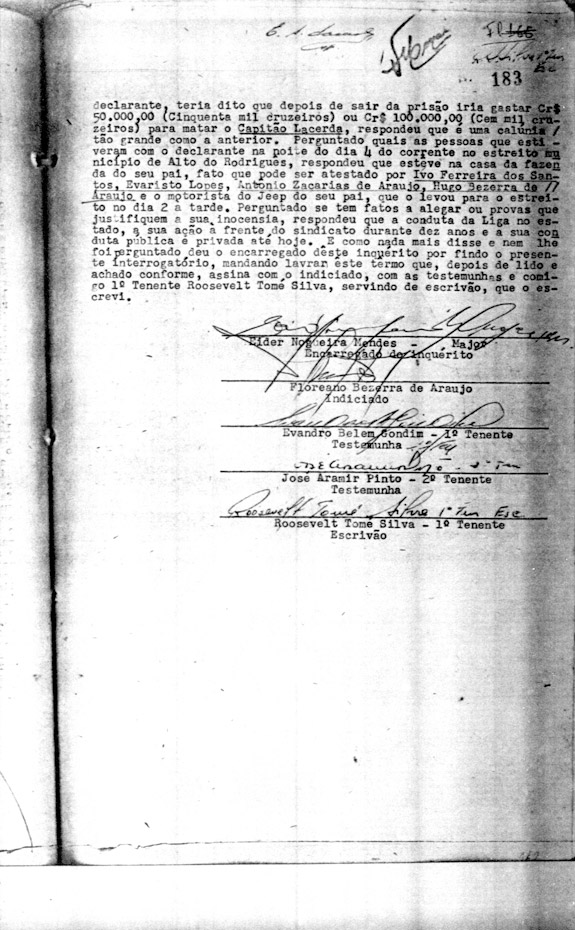 183
declarante, teria dito que depois de sair da prisão iria gastar Cr$
50.000,00 (Cinquenta mil cruzeiros) ou Cr$ 100.000,00 (Cem mil cru-
zeiros) para matar o Capitão Lacerda, respondeu que é uma calúnia /
tão grande como a anterior. Perguntado quais as pessoas que esti -
veram com o declarante na noite do dia 4 do corrente no estreito mu
nicípio de Alto do Rodrigues, respondeu que esteve na casa da fazen
da do seu pai, fato que pode ser atestado por Ivo Ferreira dos San-
tos, Evaristo Lopes, Antonio Zacarias de Araujo, Hugo Bezerra de //
Araujo e o motorista do Jeep do seu pai, que o levou para o estrei-
to no dia 2 a tarde. Perguntado se tem fatos a alegar ou provas que
justifiquem a sua inocensia, respondeu que a conduta da Liga no es-
tado, a sua ação a frente do sindicato durante dez anos e a sua con
duta pública e privada até hoje. E como nada mais disse e nem lhe
foi perguntado deu o encarregado deste inquérito por findo o presen-
te interrogatório, mandando lavrar este termo que, depois de lido e
achado conforme, assina com o indiciado, com as testemunhas e comi-
go 1º Tenente Roosevelt Tomé Silva, servindo de escrivão, que o es-
crevi.
Eider Nogueira Mendes - Major
Encarregado do inquérito
Floreano Bezerra de Araujo
Indiciado
Evandro Belem Gondim - 1º Tenente
Testemunha
José Aramir Pinto - 2º Tenente
Testemunha
Roosevelt Tomé Silva 1º Ten Esc
Roosevelt Tomé Silva - 1º Tenente
Escrivão